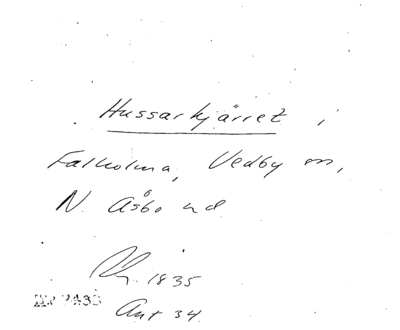 Hussarkjärret i
Falholma, Vedby sn,
N. Åsbo hd
1835
Akt 34